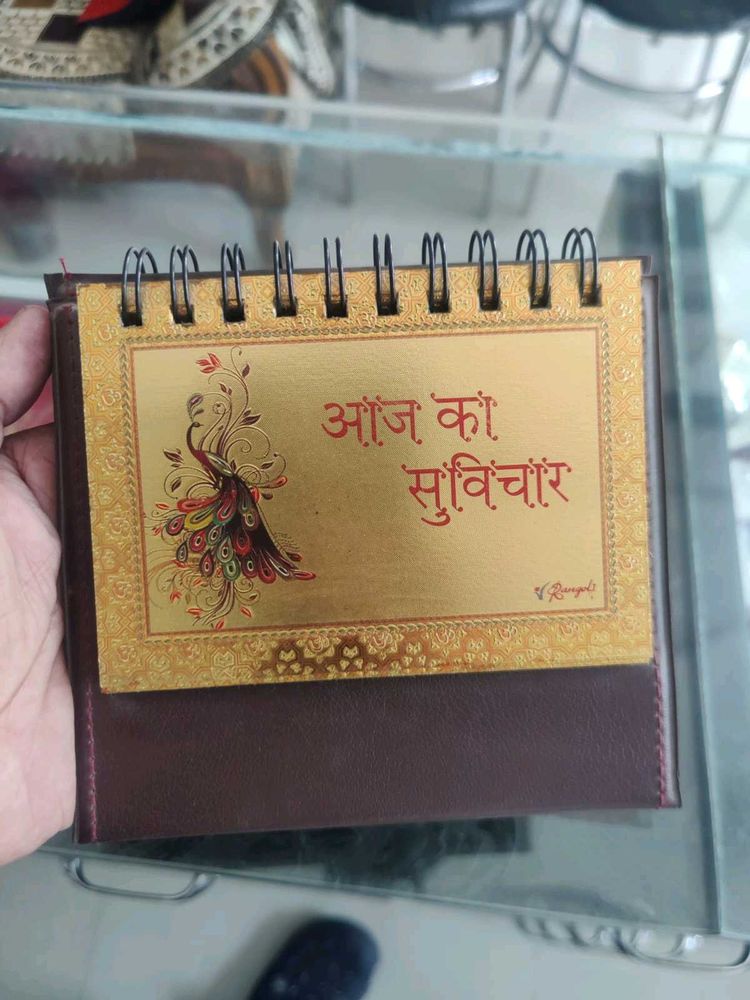 आज का
सुविचार
Rangoli